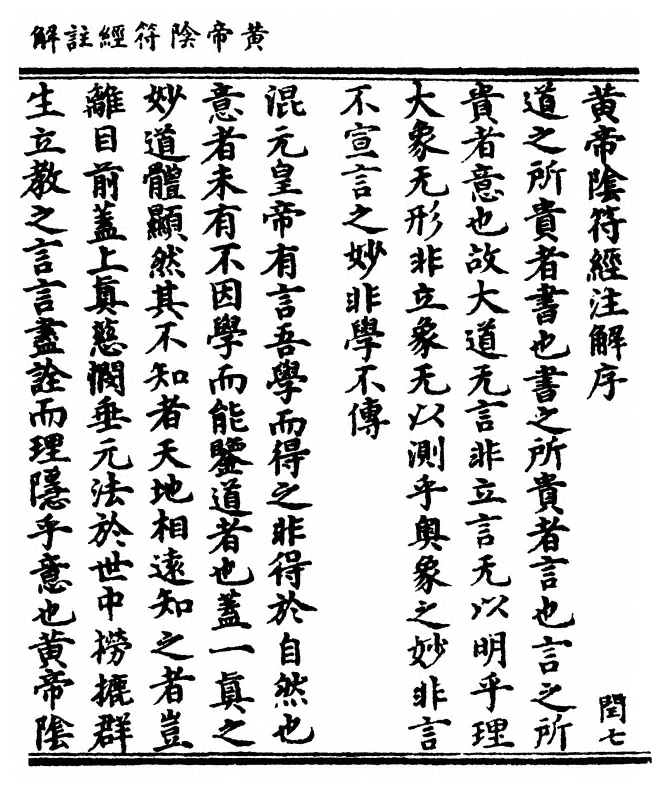 黃帝陰符經註解
黃帝陰符經注解序 閏七
道之所貴者書也書之所貴者言也言之所
貴者意也故大道无言非立言无以明乎理
大象无形非立象无以測乎奧象之妙非言
不宣言之妙非學不傳
混元皇帝有言吾學而得之非得於自然也
意者未有不因學而能鑒道者也蓋一真之
妙道體顯然其不知者天地相遠知之者豈
離目前蓋上真慈憫垂元法於世中撈摝群
生立教之言言盡詮而理隱乎意也黃帝陰